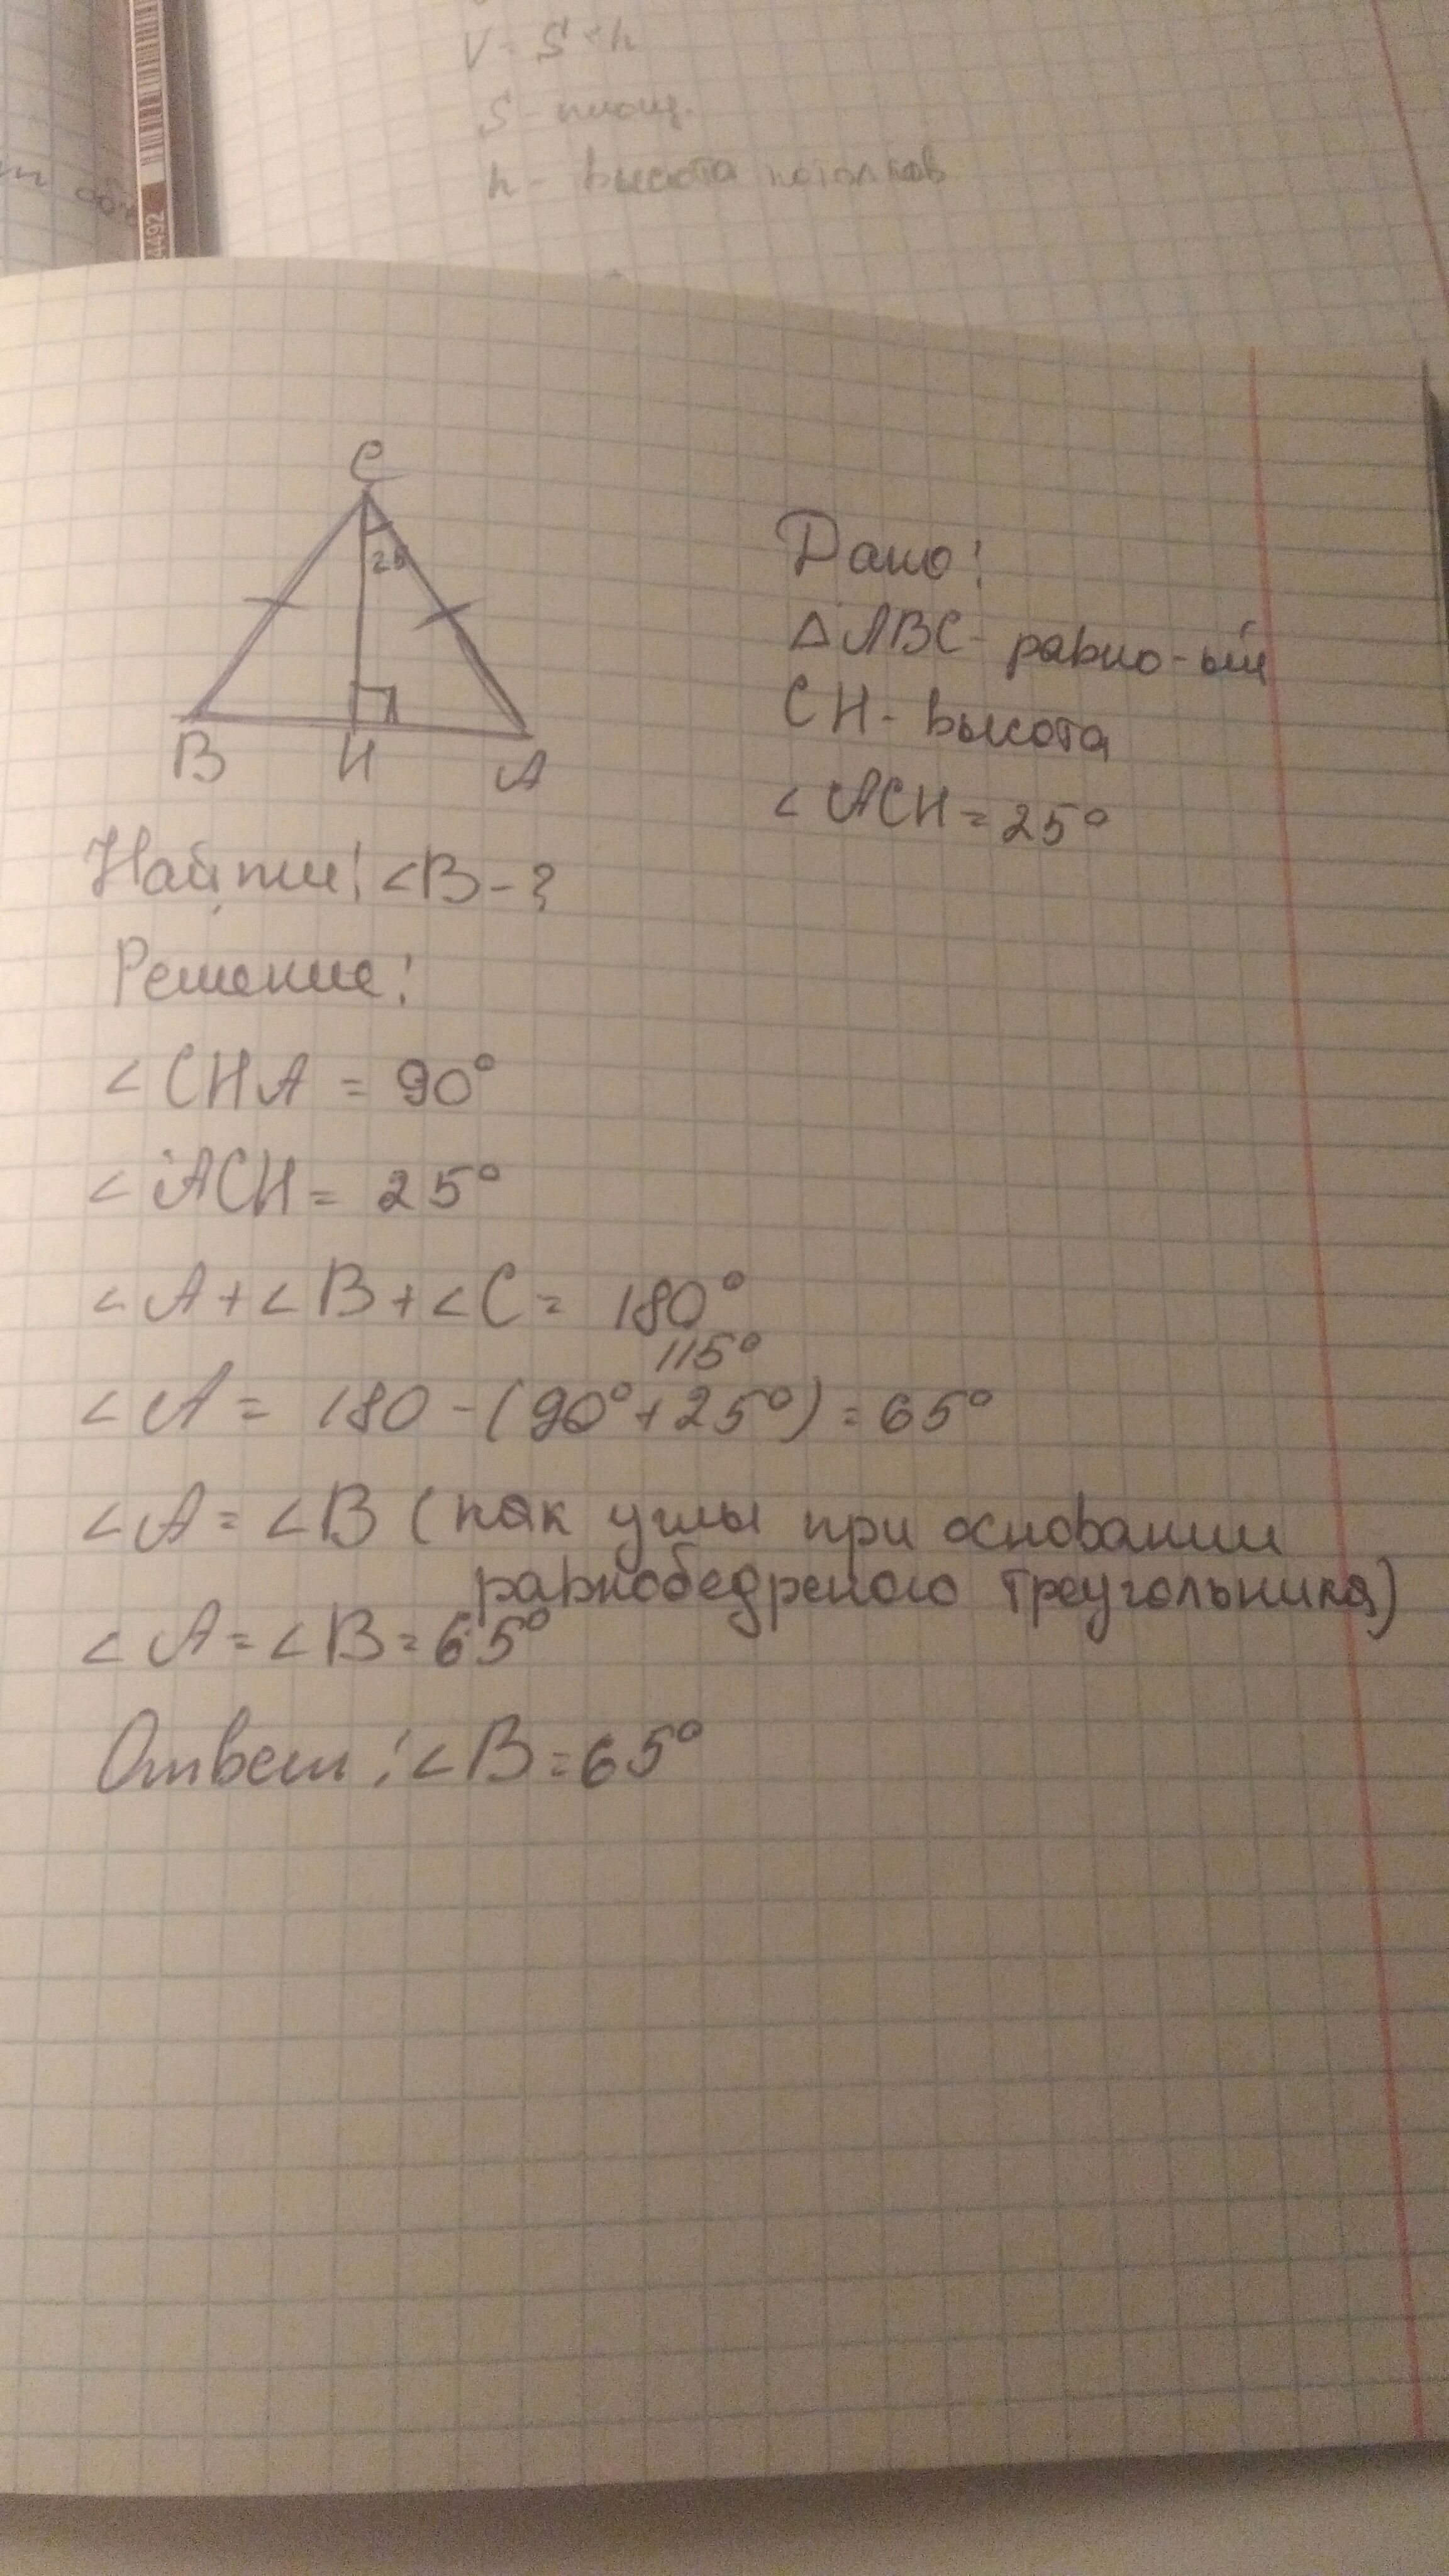 V = S × h
S - площ.
h - высота потолков
4492
C
25
B H A
Дано:
△ABC - равно-ый
CH - высота
∠ACH = 25°
Найти: ∠B - ?
Решение:
∠CHA = 90°
∠ACH = 25°
∠A + ∠B + ∠C = 180°
115°
∠A = 180 - (90° + 25°) = 65°
∠A = ∠B (как углы при основании
равнобедреного треугольника)
∠A = ∠B = 65°
Ответ: ∠B = 65°